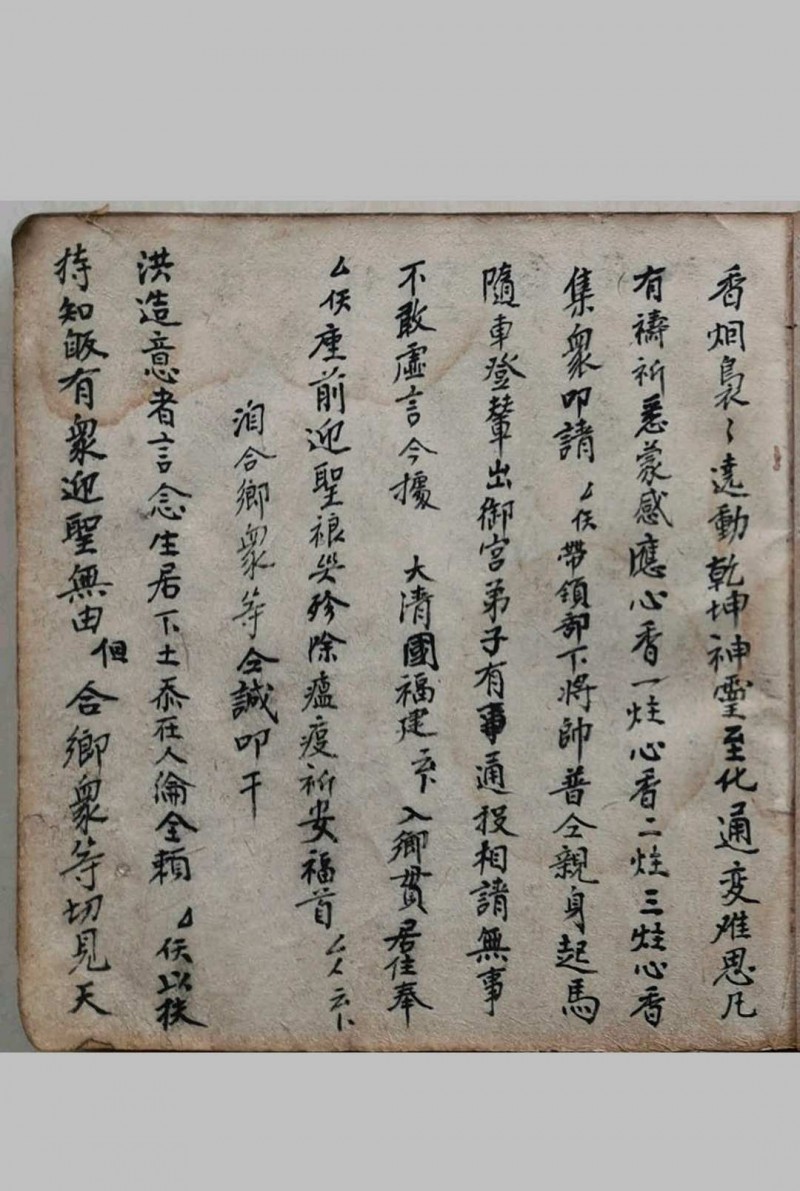 香烟裊〻遶動乾坤神靈至化通变难思凡
有禱祈悉蒙感應心香一炷心香二炷三炷心香
集衆叩請厶伕帶領部下將帥普仝親身起馬
隨車登輦出御宮弟子有事通投相請無事
不敢虛言今據 大清國福建云下入鄉貫居住奉
厶伕座前迎聖禳災殄除瘟疫祈安福首厶人云下
洎合鄉衆等仝誠叩干
洪造意者言念生居下土忝在人倫全賴厶伕以扶
持知皈有衆迎聖無由但合鄉衆等切見天